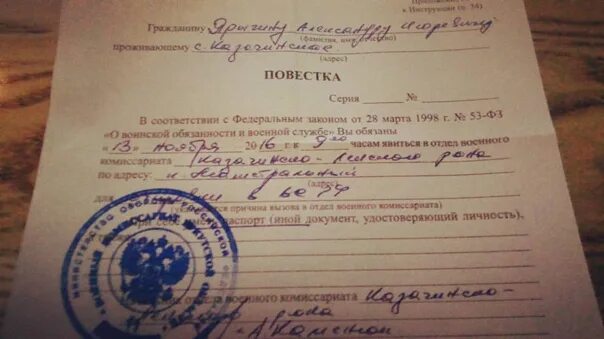 Приложение
к Инструкции (п. 34)
Гражданину Ярыгину Александру Игоревичу
(фамилия, имя, отчество)
проживающему с. Казачинское
(адрес)
ПОВЕСТКА
Серия № 
В соответствии с Федеральным законом от 28 марта 1998 г. № 53-ФЗ
«О воинской обязанности и военной службе» Вы обязаны
«13» ноября 2016 г. к 9 00 часам явиться в отдел военного
комиссариата Казачинско-Ленского рона
по адресу: п. Магистральный
(адрес)
для в ВС РФ
(указывается причина вызова в отдел военного комиссариата)
При себе иметь паспорт (иной документ, удостоверяющий личность),
отдела военного комиссариата Казачинско-
рона
А Каменой